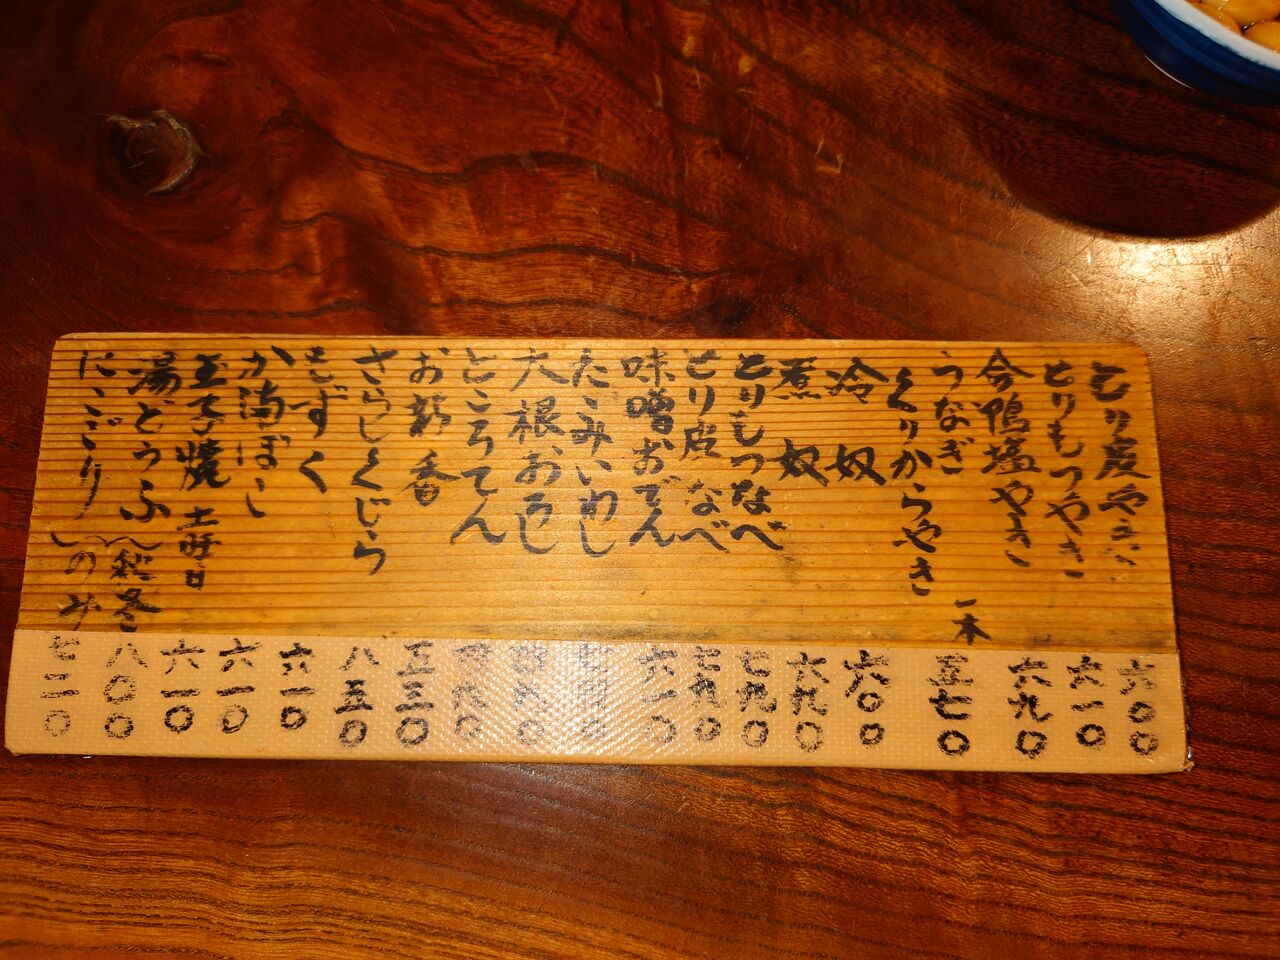 とり皮やき 六〇〇
とりもつやき 六一〇
合鴨塩やき 六九〇
うなぎ
くりからやき 一本 五七〇
冷奴 六〇〇
煮奴 六九〇
とりもつなべ 七九〇
とり皮なべ 七九〇
味噌おでん 六一〇
たたみいわし
大根おろし 四九〇
ところてん 四九〇
お新香 五三〇
さらしくじら 八五〇
もずく 六一〇
か満ぼこ 六一〇
玉子焼 土曜日 六一〇
湯とうふ 秋冬 八〇〇
にこごり のみ 七二〇